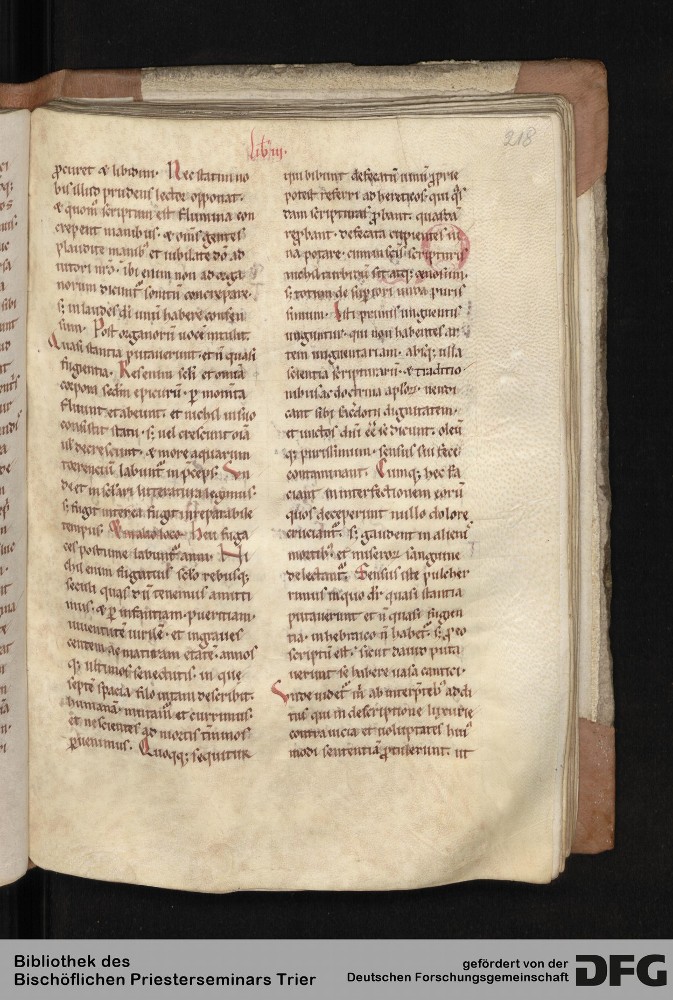 lib iii.
218
p̄curet & libidini. Nec statim no
bis illud prudens lector opponat.
& quom̄ scriptum est flumina con
crepent manibus. & om̄s gentes
plaudite manib; et iubilate dō ad
iutori nr̄o. ibi enim non ad orga
norum dicunt sonitū concrepare.
s; in laudes dī unū habere consen
sum. Post organorū uocē intulit.
Quasi stantia putauerunt. et ñ quasi
fugientia. Resenim scli et omīa
corpora scd̄m epicurū. p̄ momīta
fluunt et abeunt. et nichil in suo
consistit statu. s; uel crescunt oīa
ul decrescunt. & more aquarum
torrenciū labunt̄ in p̄ceps. Vn
de et in sclari litteratura legimus.
s; fugit interea fugit inreparabile
tempus. Et in alio loco. Heu fuga
ces postume labunt̄ anni. Ni
chil enim fugatius sclo rebusq;
secli quas dū tenemus amitti
mus. & p̄ infantiam. pueritiam.
iuuentutē uirilē. et ingraues
centem ac maturam etatē. annos
q; ultimos senectutis. in que
septē spacia filo uitam describit.
humanā. mutam̄ et currimus.
et nescientes ad mortis t̄minos
p̄uenimus. Quoq; sequitur
qui bibunt defecatū uinū p̄prie
potest referri ad hereticos. qui q̄s
dam scripturas p̄bant. quasdā
rep̄bant. defecata cupientes ui
na potare. cum in scis scripturis
nichil turbidū sit atq; cenosum.
s; totum de supiori unda puris
simum. Isti primis unguentis
unguntur. qui non habentes ar
tem unguentariam. absq; ulla
scientia scripturarū. & traditio
nibus ac doctrina aplōꝝ. uendi
cant sibi sacdotū dignitatem.
et unctos dnī eē se dicunt. oleū
q; purissimum. sensus sui fece
contaminant. Cumq; hec fa
ciant in interfectionem eorū
quos deceperunt nullo dolore
cruciant̄. s; gaudent in alienis
mortib; et miseroꝝ sanguine
delectant̄. Sensus iste pulcher
rimus in quo dr̄ quasi stantia
putauerunt et ñ quasi fugien
tia. in hebraico ñ habet̄. s; p̄ eo
scriptū est. sicut dauid puta
uerunt se habere uasa cantici.
Vnde uidet̄ m̄ ab interp̄tib; addi
tus qui in descriptione luxurie
contra uicia et uoluptates hui'
modi sententiā p̄tulerunt. ut
Bibliothek des
Bischöflichen Priesterseminars Trier
gefördert von der
Deutschen Forschungsgemeinschaft
DFG